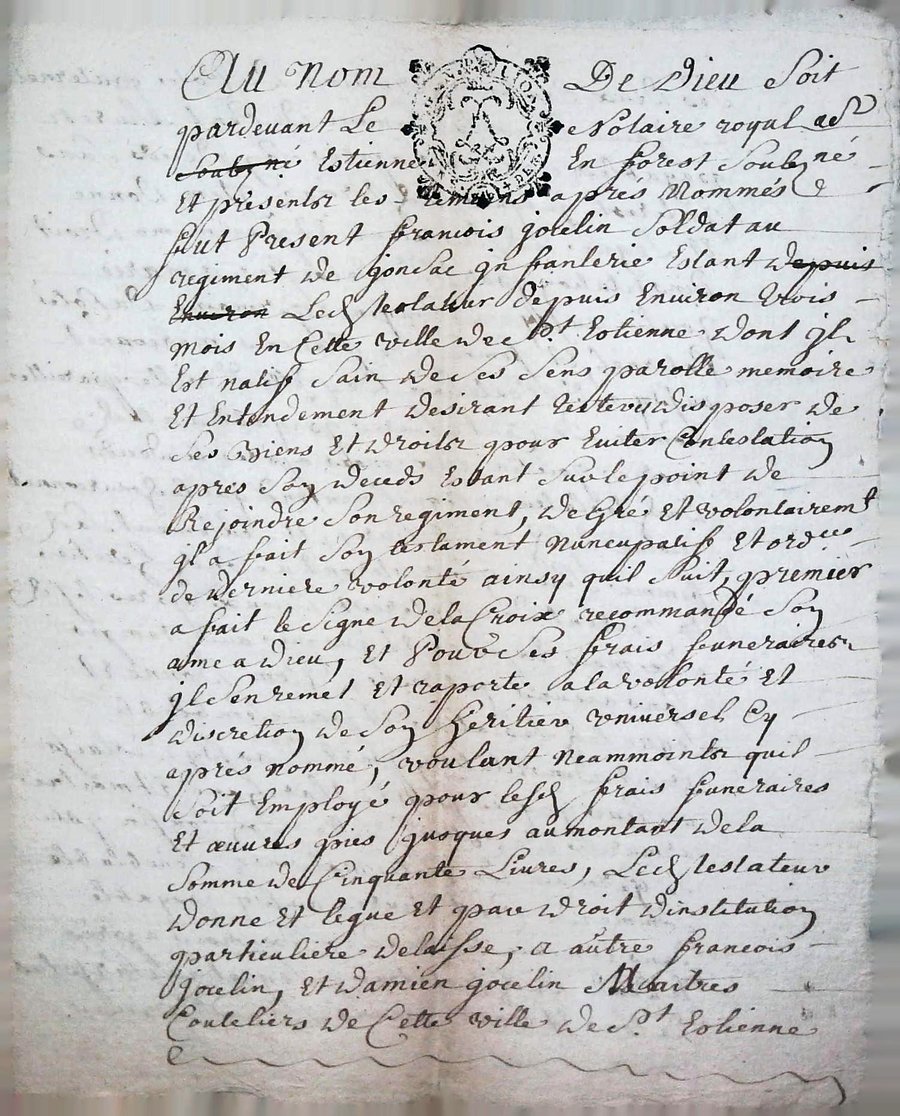 Au Nom De Dieu Soit
pardevant Le Notaire royal a St
Soub.né Estienne En forest Soub.né
Et presents les temoins aprés Nommés
fut Present francois jocelin Soldat au
regiment de jonsac jnfanterie Estant depuis
Environ Led. testateur depuis Environ trois
mois En Cette ville de St. Estienne dont jl
Est natif Sain de Ses Sens parolle memoire
Et Entendement desirant disposer de
Ses Biens Et droits pour Eviter Contestation
apres Son deceds Estant Sur le point de
Rejoindre Son regiment, de Gré Et volontairemt
jl a fait Son testament Nuncupatif Et ord.ce
de derniere volonté ainsy quil Suit, premier
a fait le Signe de la Croix recommandé Son
ame a Dieu, Et Pour Ses frais funeraires
jl Sen remet Et raporte a la volonté Et
discretion de Son heritier universel Cy
aprés nommé, voulant Neammoints quil
Soit Employé pour lesd. frais funeraires
Et œuvres pies jusques au montant de la
Somme de Cinquante Livres, Led. testateur
donne Et legue Et par droit dinstitution
particuliere delaisse, a autre francois
jocelin, Et damien jocelin Maitres
Couteliers de Cette ville de St. Estienne